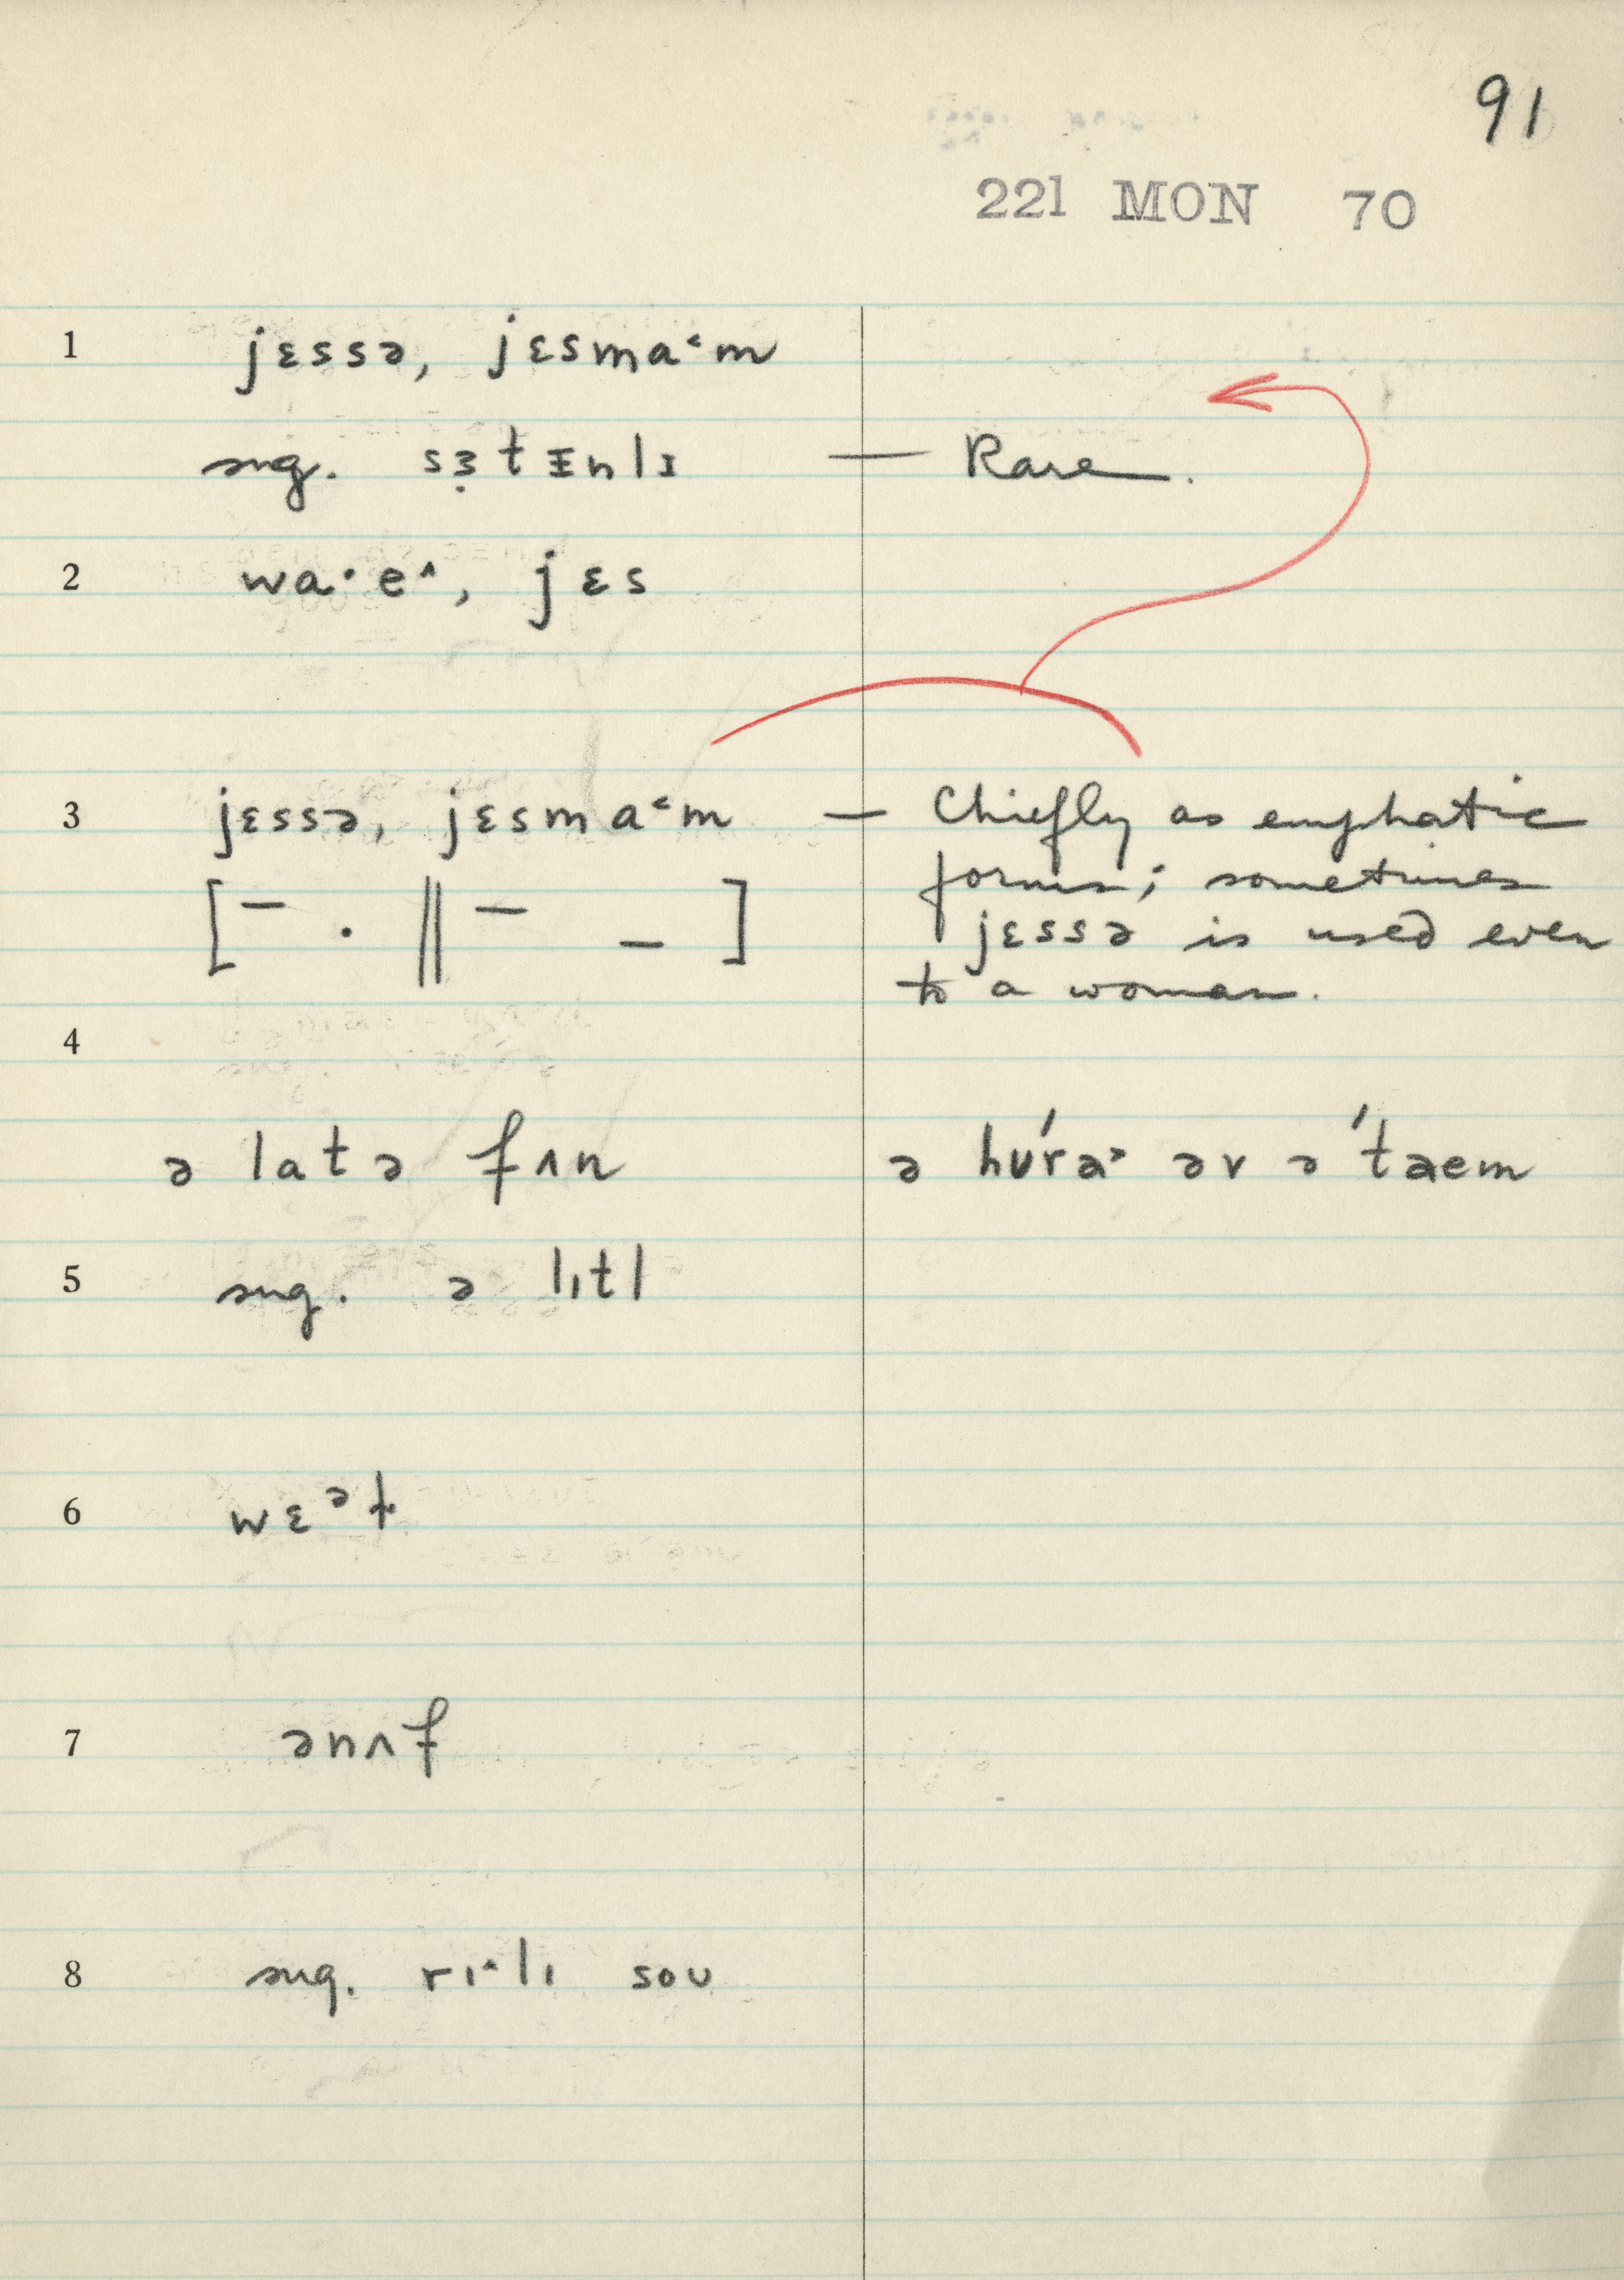 91
221 MON 70
1 jɛssə, jɛsma˂m
sug. sɜ̣tᵻnlɪ — Rare.
2 wa·e˄, jɛs
3 jɛssə, jɛsma˂m — Chiefly as emphatic
[¯ · ‖ ¯ _ ] forms; sometimes
jɛssə is used even
to a woman.
4
ə latə fʌn ə hʊ́ra˃ əv ə 'taem
5 sug. ə lɪtl
6 wɛᵊɫ
7 ənʌf
8 sug. rɪ˄lɪ soʊ